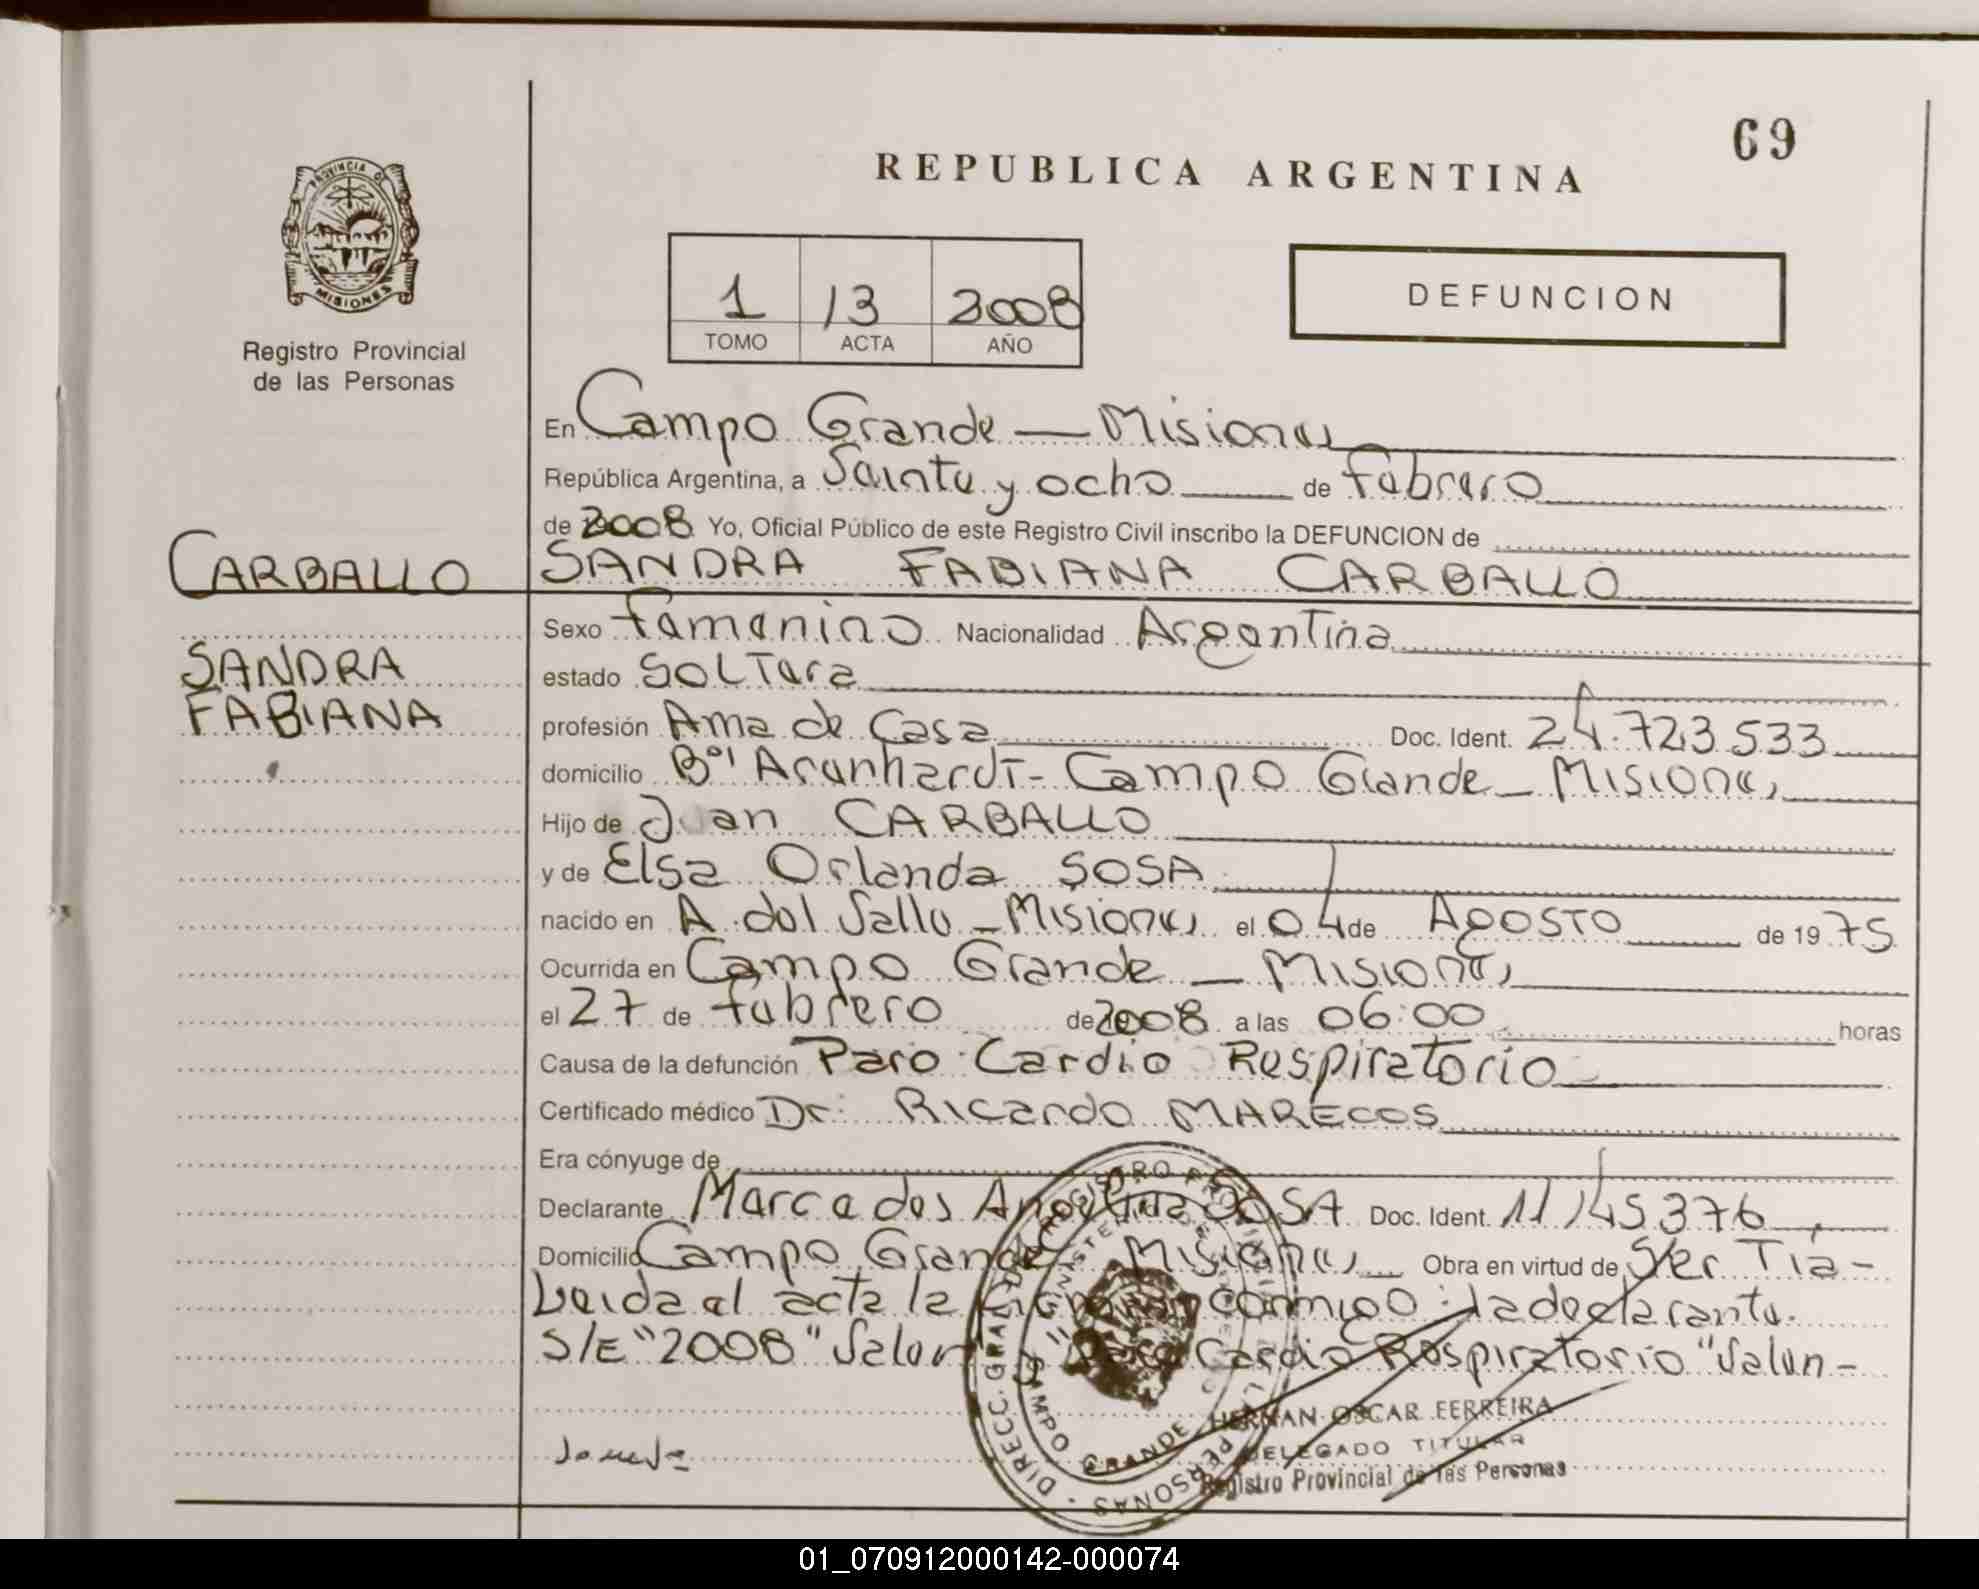 69
REPUBLICA ARGENTINA
PROVINCIA DE
MISIONES
Registro Provincial
de las Personas
1 13 2008
TOMO ACTA AÑO
DEFUNCION
En Campo Grande — Misiones
República Argentina, a Veinte y ocho de febrero
de 2008 Yo, Oficial Público de este Registro Civil inscribo la DEFUNCION de
CARBALLO
SANDRA FABIANA CARBALLO
Sexo femenino Nacionalidad Argentina
SANDRA
FABIANA
estado SOLTera
profesión Ama de Casa Doc. Ident. 24.723.533
domicilio Bº Arenhardt - Campo Grande - Misiones
Hijo de Juan CARBALLO
y de Elsa Orlanda SOSA
nacido en A. del Valle - Misiones el 04 de AGOSTO de 1975
Ocurrida en Campo Grande - Misiones
el 27 de febrero de 2008 a las 06:00 horas
Causa de la defunción Paro Cardio Respiratorio
Certificado médico Dr: Ricardo MARECOS
Era cónyuge de
Declarante Mercedes Angelina SOSA Doc. Ident. 11.145.376
Domicilio Campo Grande Misiones Obra en virtud de Ser Tia-
Leida el acta la firma conmigo: la declarante.
S/E "2008" Valen "Paro Cardio Respiratorio" Valen-
HERNAN OSCAR FERREIRA
DELEGADO TITULAR
Registro Provincial de las Personas
DIRECC. GRAL. DEL REGISTRO PROVINCIAL DE LAS PERSONAS
MINISTERIO DE GOBIERNO
CAMPO GRANDE
01_070912000142-000074